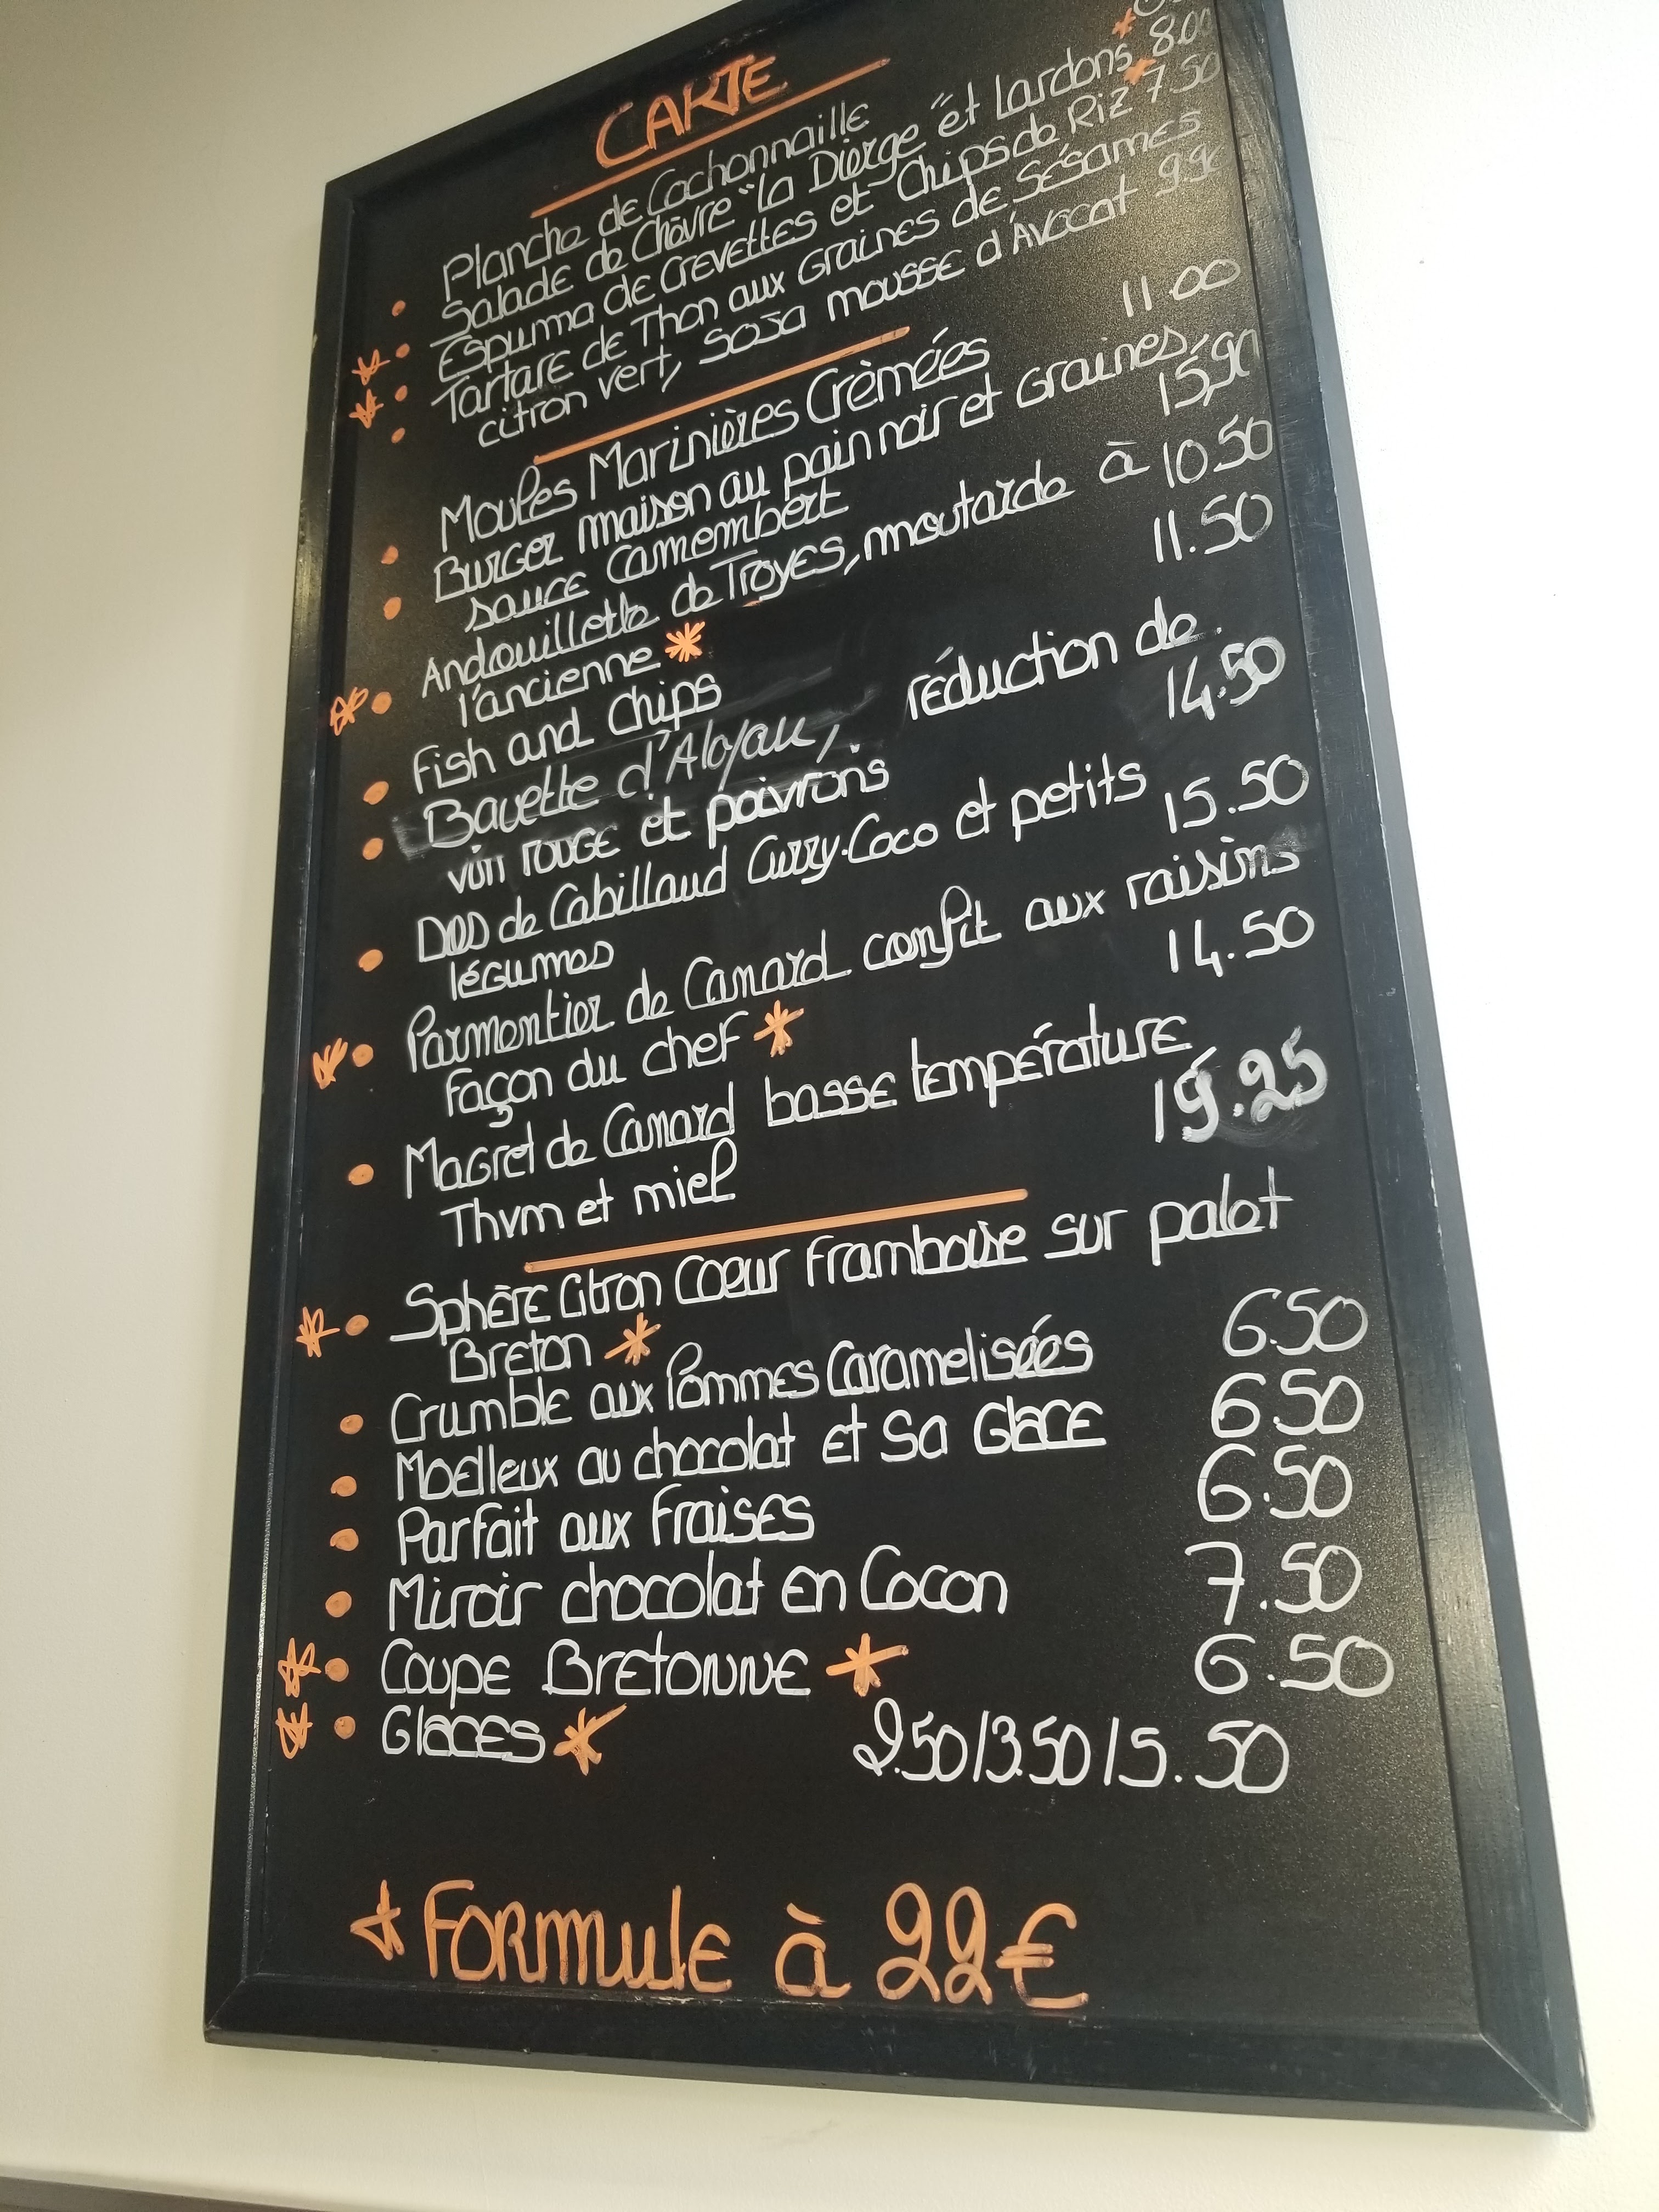 CARTE
Planche de Cochonnaille
Salade de Chèvre "la Dierge" et Lardons * 8.00
Espuma de Crevettes et Chips de Riz * 7.50
Tartare de Thon aux Graines de Sésames
citron vert, soja mousse d'Avocat 9.90
Moules Marinières Crèmées 11.00
Burger maison au pain noir et Graines,
sauce camembert 15,90
Andouillette de Troyes, moutarde à 10.50
l'ancienne *
Fish and Chips 11.50
Bavette d'Aloyau, réduction de
vin rouge et poivrons 14.50
Dos de Cabillaud Curry-Coco et petits
légumes 15.50
Parmontier de Canard confit aux raisins
Façon du chef * 14.50
Magret de Canard basse température
Thym et miel 19.25
Sphère Citron Coeur Framboise sur palet
Breton * 6.50
Crumble aux Pommes Caramelisées 6.50
Moelleux au chocolat et Sa Glace 6.50
Parfait aux Fraises 7.50
Miroir chocolat en Cocon 6.50
Coupe Bretonne *
Glaces * 2.50/3.50/5.50
* Formule à 22€